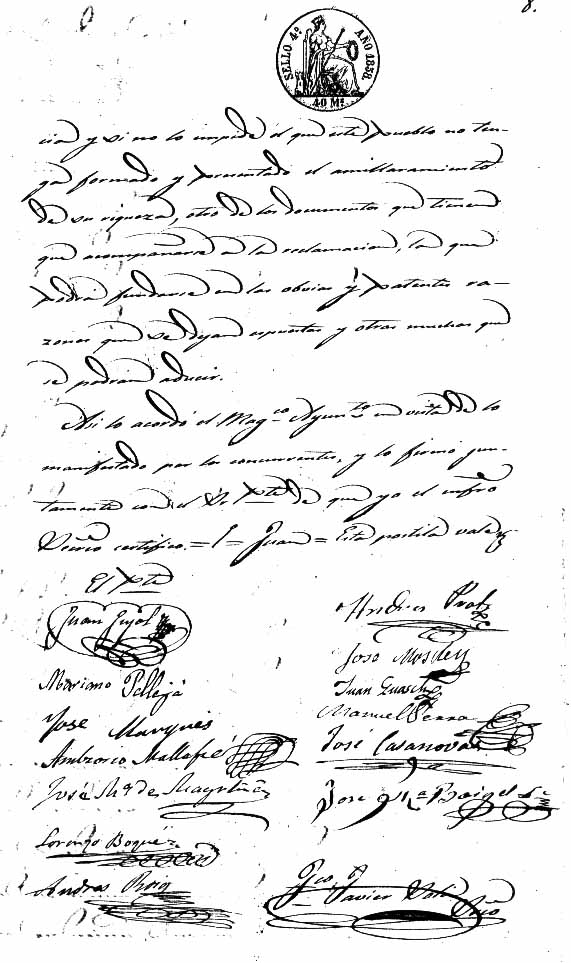 8.
SELLO 4º AÑO 1858.
40 Ms
cia y si no lo impide el que este pueblo no ten-
ga formado y presentado el amillaramiento
de su riqueza, otro de los documentos que tienen
que acompañarse a la reclamacion, la que
podrá fundarse en las obvias y patentes ra-
zones que se dejan espuestas y otras muchas que
se podran aducir.
Asi lo acordó el Magco Ayunto en vista de lo
manifestado por los concurrentes, y lo firmó jun-
tamente con el Sr Pste de que yo el infro
Srio certifico. = J = Juan = Esta postila vale
El Pste
Juan Pujol
Andres Prat
Jose
Mariano Pellejá
Juan Guasch
Jose Marques
Manuel Serra
Ambrosio Mallafré
José Casanovas
José Ma de Magriñá
Jose Ma
Lorenzo Boqué
Andres Roig
Fco Javier
Srio